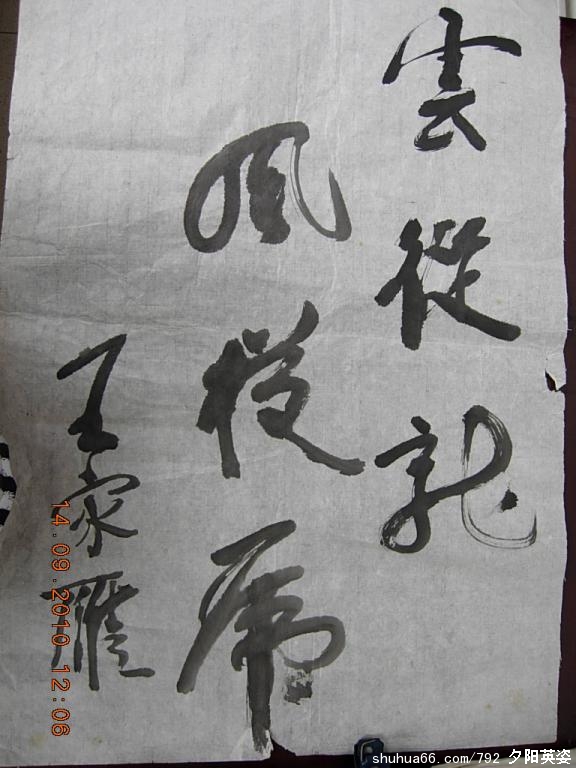 雲從龍
風從虎
王家雁
14.09.2010 12:06
shuhua66.com/792 夕阳英姿